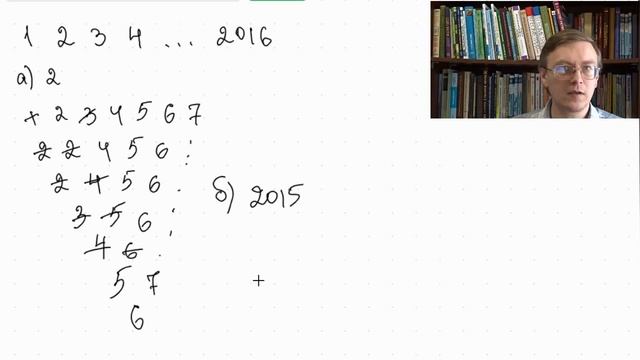 1 2 3 4 ... 2016
а) 2
1 2 3 4 5 6 7
2 2 4 5 6
2 4 5 6
3 5 6
4 6
5 7
6
б) 2015
+